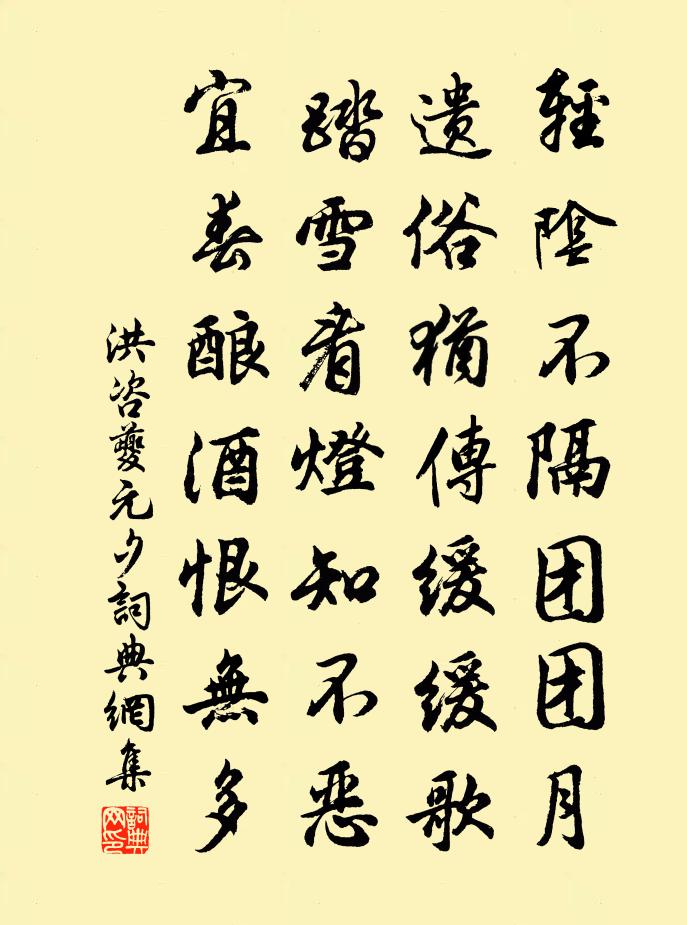 輕陰不隔团团月
遗俗猶傳緩緩歌
踏雪看燈知不恶
宜春酿酒恨無多
洪咨夔元夕詞典網集
詞典网印